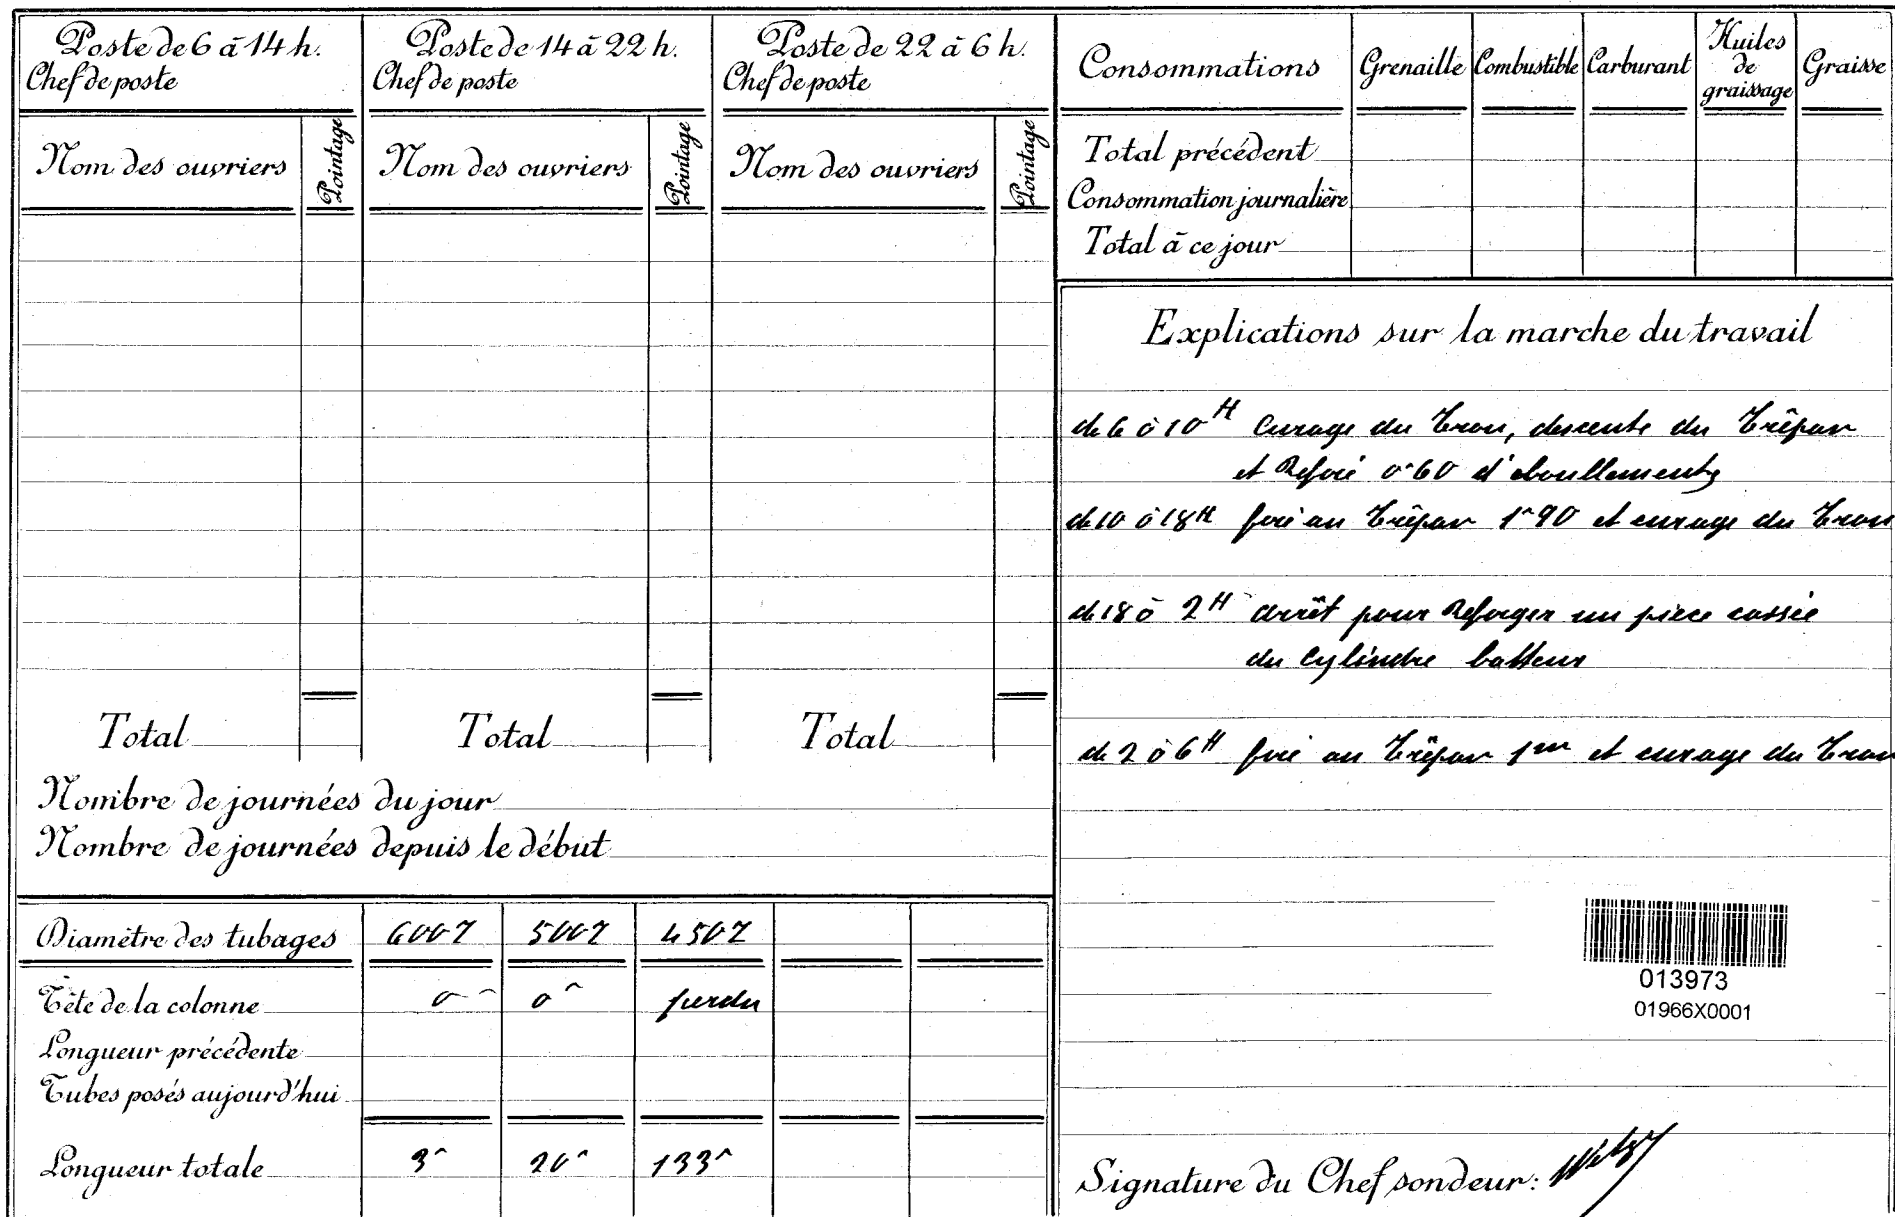 Poste de 6 à 14 h.
Chef de poste
Nom des ouvriers
Pointage
Total
Poste de 14 à 22 h.
Chef de poste
Nom des ouvriers
Pointage
Total
Poste de 22 à 6 h.
Chef de poste
Nom des ouvriers
Pointage
Total
Nombre de journées du jour
Nombre de journées depuis le début
Diamètre des tubages 600 500 450
Tête de la colonne 0 0 perdu
Longueur précédente
Tubes posés aujourd'hui
Longueur totale 3m 20m 133m
Consommations Grenaille Combustible Carburant Huiles de graissage Graisse
Total précédent
Consommation journalière
Total à ce jour
Explications sur la marche du travail
de 6 à 10H Curage du Trou, descente du Trépan
et Reforé 0m60 d'éboullements
de 10 à 18H foré au Trépan 1m90 et curage du Trou
de 18 à 2H arrêt pour Reforger un piece cassée
du Cylindre batteur
de 2 à 6H foré au Trépan 1m et curage du Trou
013973
01966X0001
Signature du Chef sondeur: